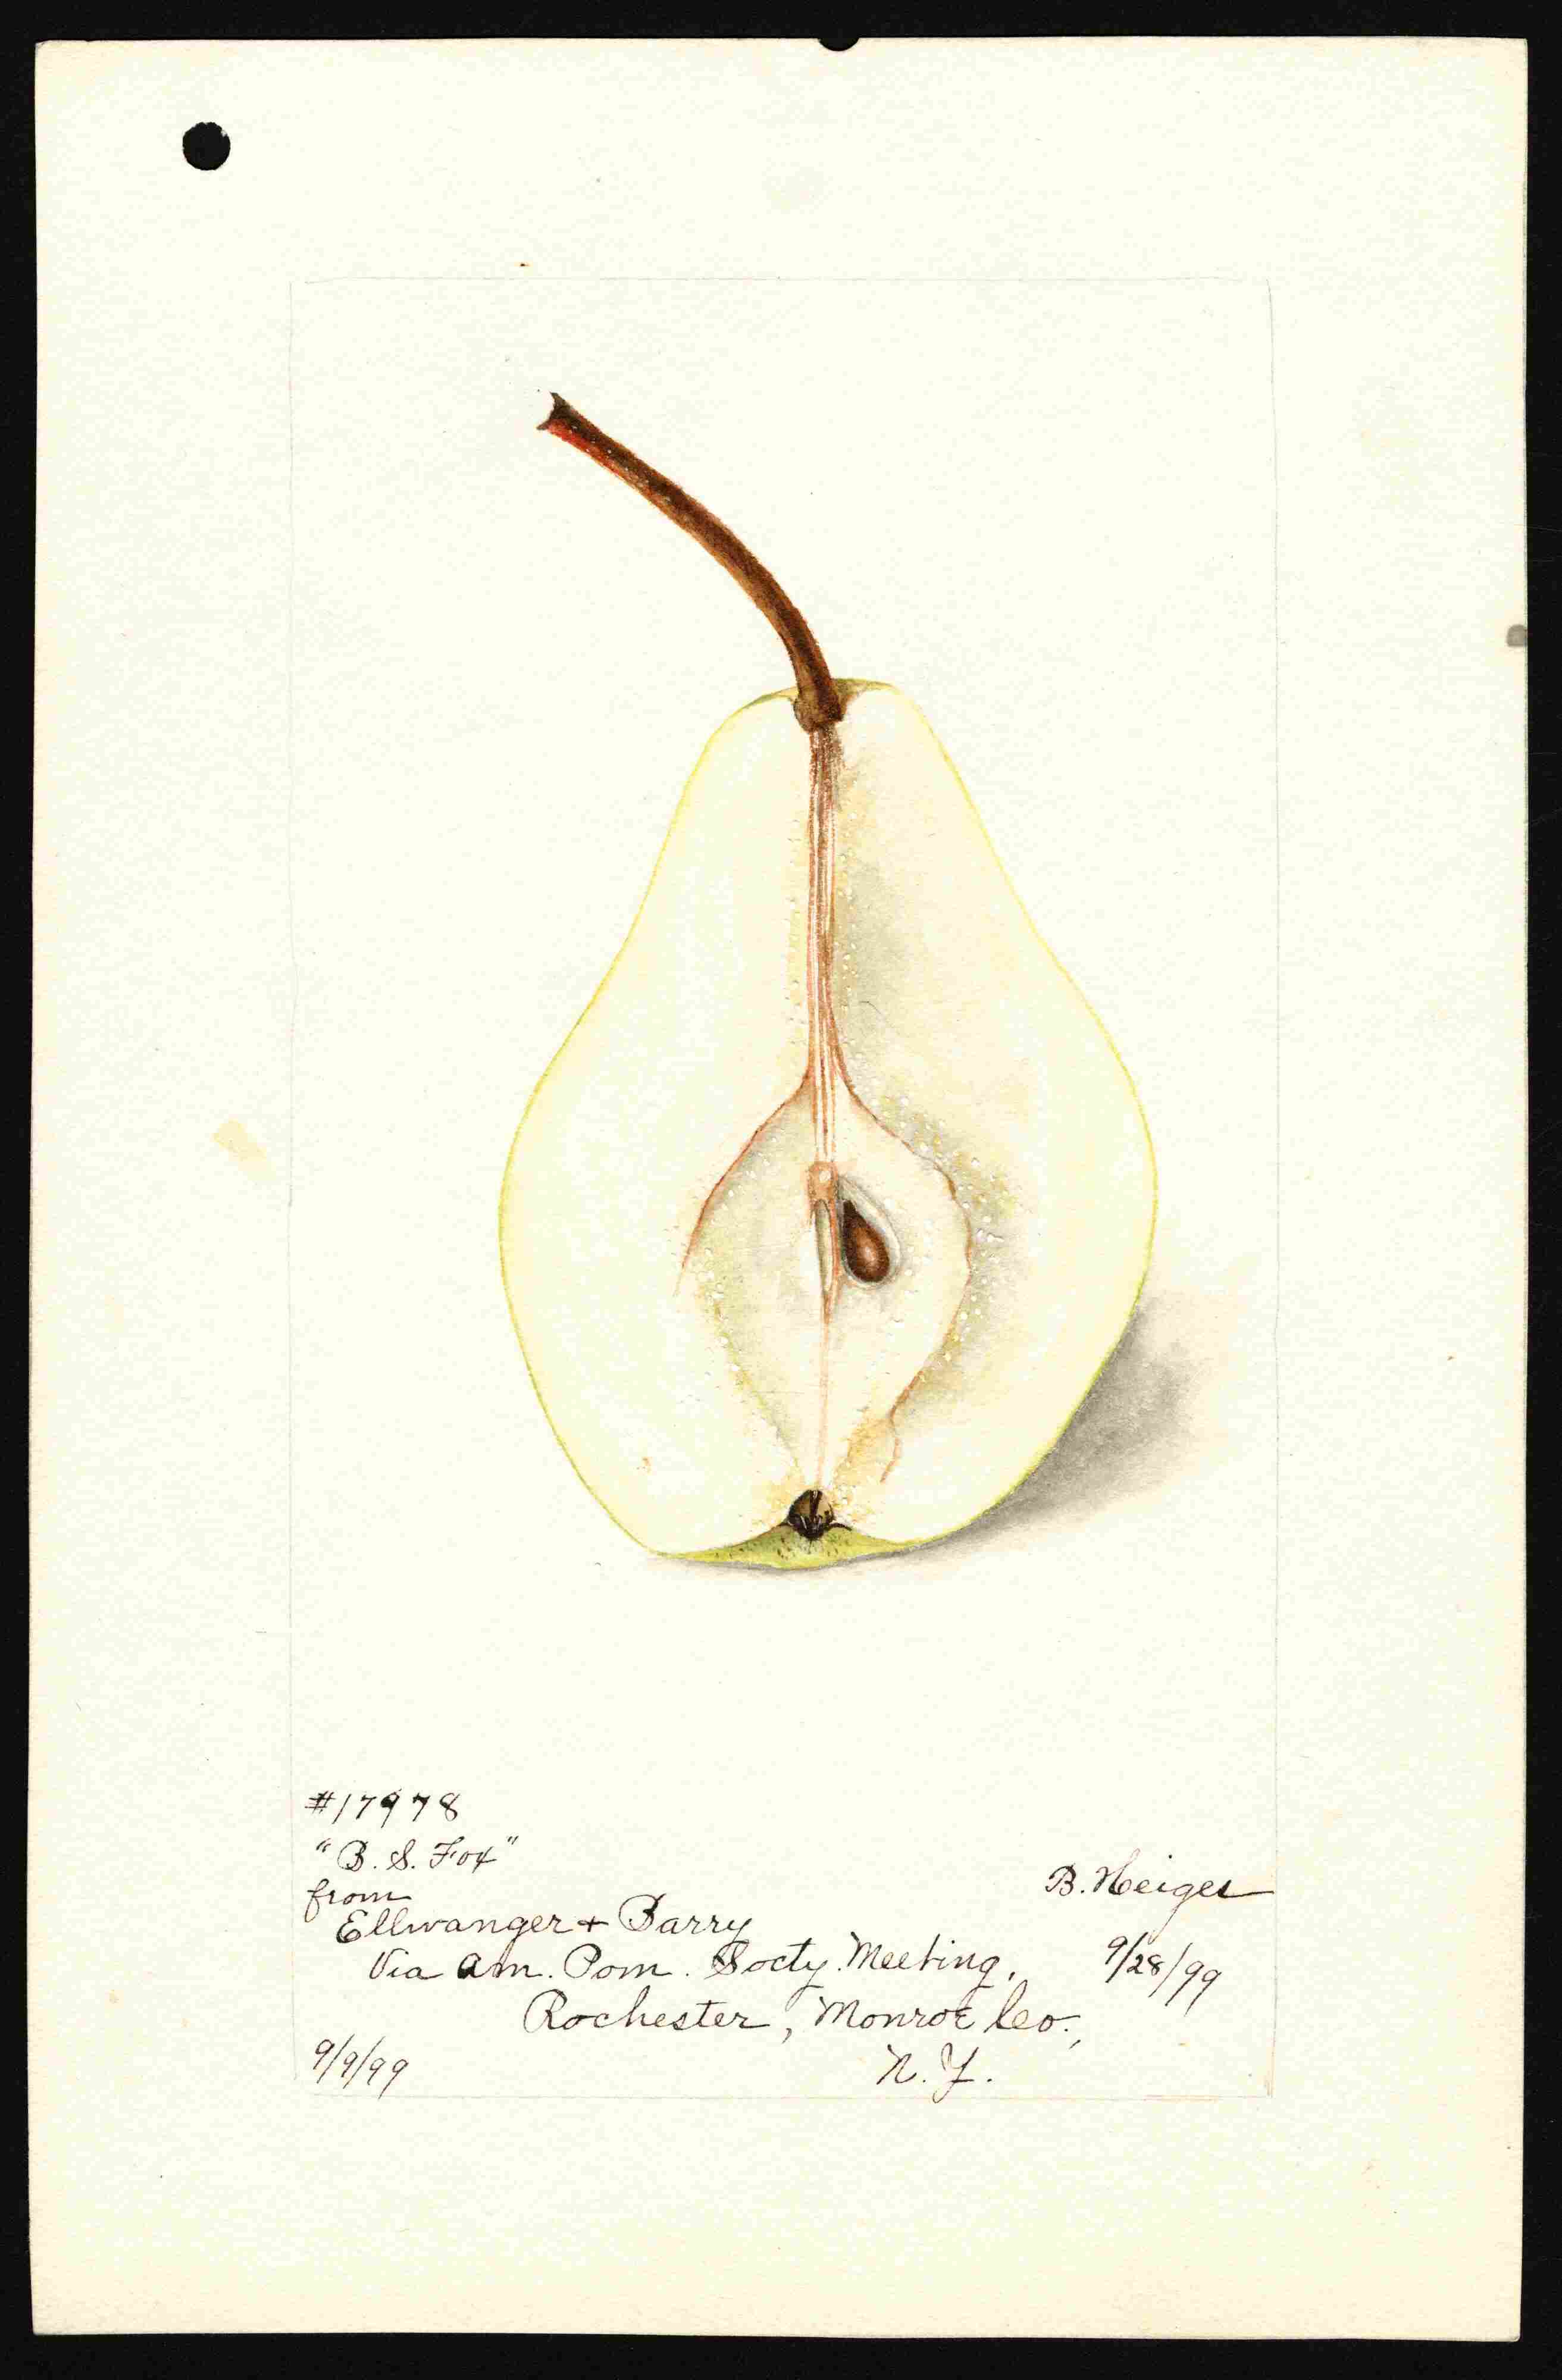 #17978
"B. S. Fox"
from
Ellwanger + Barry
Via Am. Pom. Socty. Meeting,
Rochester, Monroe Co.,
N. Y.
9/9/99
B. Heiges
9/28/99